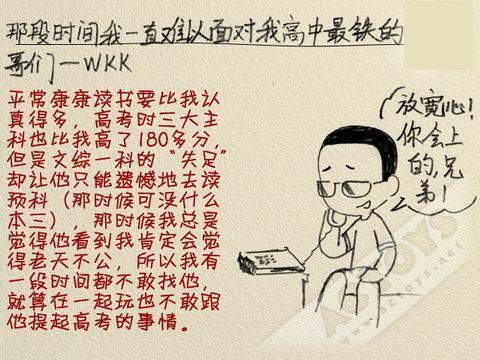 那段时间我一直难以面对我高中最铁的
哥们—WKK
平常康康读书要比我认
真得多，高考时三大主
科也比我高了180多分，
但是文综一科的“失足”
却让他只能遗憾地去读
预科（那时候可没什么
本三），那时候我总是
觉得他看到我肯定会觉
得老天不公，所以我有
一段时间都不敢找他，
就算在一起玩也不敢跟
他提起高考的事情。
放宽心！
你会上
的，兄
弟！